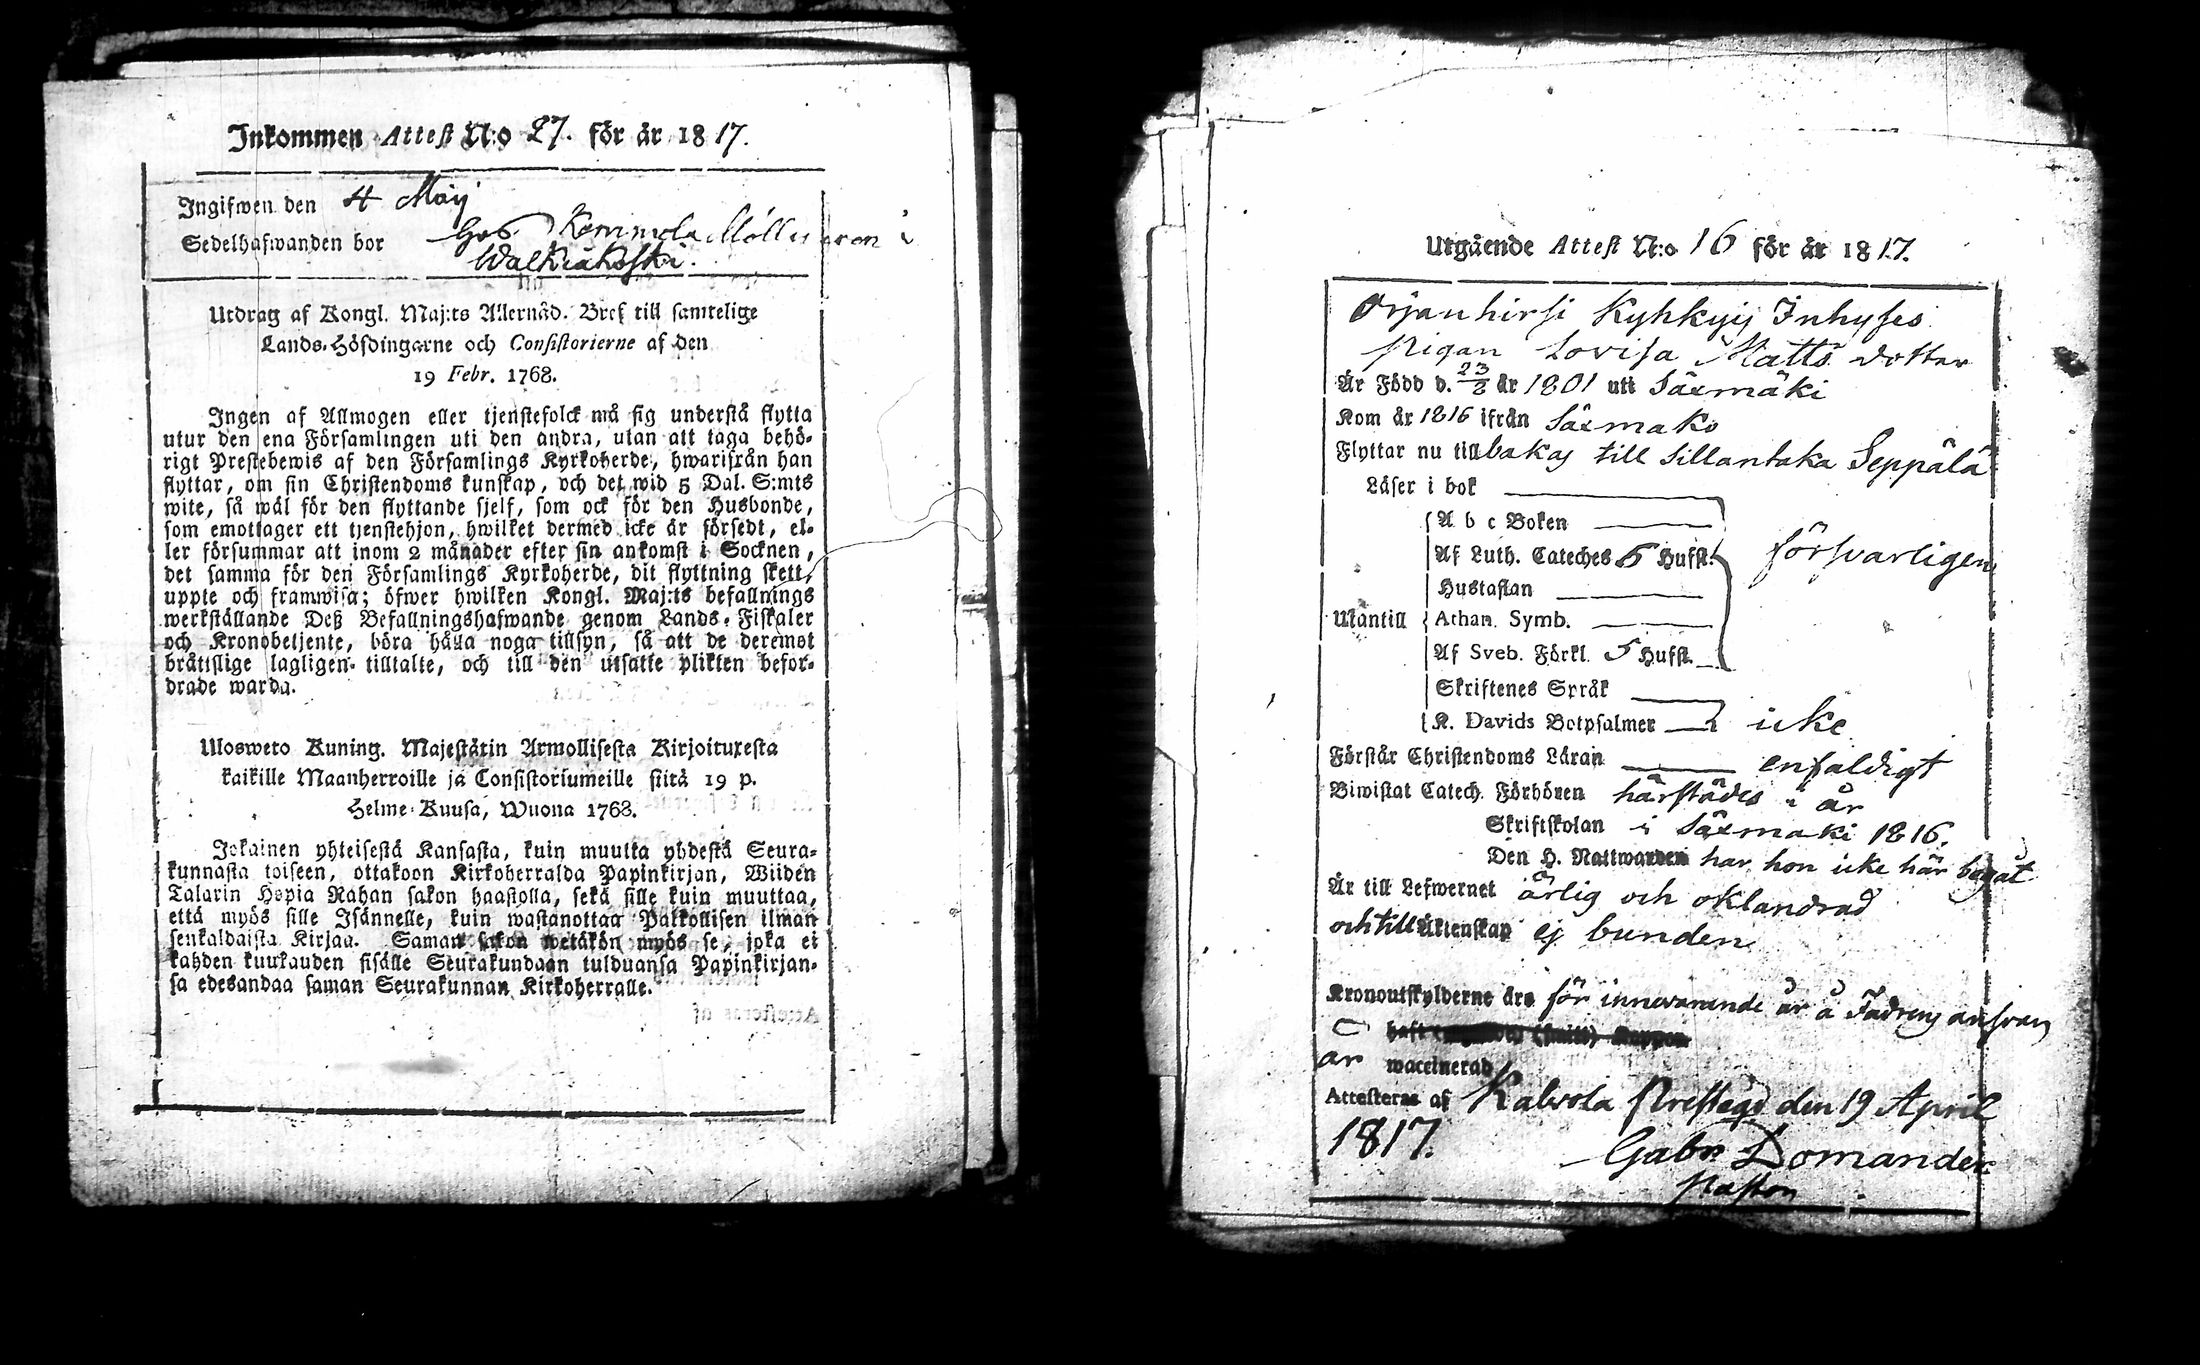 Inkommen Attest N:o 27. för år 1817.
Ingifwen den 4 Maij
Sedelhafwanden bor hos Kemmola Möllnaren i
Walkiakoski.
Utdrag af Kongl. Maj:ts Allernåd. Bref till samtelige
Lands-Höfdingarne och Consistorierne af den
19 Febr. 1768.
Ingen af Allmogen eller tjenstefolck må sig understå flytta
utur den ena Församlingen uti den andra, utan att taga behö-
rigt Prestebewis af den Församlings Kyrkoherde, hwarifrån han
flyttar, om sin Christendoms kunskap, och det wid 5 Dal. S:mts
wite, så wäl för den flyttande sjelf, som ock för den Husbonde,
som emottager ett tjenstehjon, hwilket dermed icke är försedt, el-
ler försummar att inom 2 månader efter sin ankomst i Socknen,
det samma för den Församlings Kyrkoherde, dit flyttning skett,
uppte och framwisa; öfwer hwilken Kongl. Maj:ts befallnings
werkställande Deß Befallningshafwande genom Lands-Fiskaler
och Kronobetjente, böra hålla noga tillsyn, så att de deremot
bråttslige lagligen tilltalte, och till den utsatte plikten befor-
drade warda.
Ulosweto Kuning. Majestätin Armollisesta Kirjoituxesta
kaikille Maanherroille ja Consistoriumeille siitä 19 p.
Helme-Kuusa, Wuona 1768.
Jokainen yhteisestä Kansasta, kuin muutta yhdestä Seura-
kunnasta toiseen, ottakoon Kirkoherralda Papinkirjan, Wiiden
Talarin Hopia Rahan sakon haastolla, sekä sille kuin muuttaa,
että myös sille Isännelle, kuin wastanottaa Palkollisen ilman
senkaldaista Kirjaa. Saman sakon wetäkön myös se, joka ei
kahden kuukauden sisälle Seurakundaan tulduansa Papinkirjan-
sa edesandaa saman Seurakunnan Kirkoherralle.
Utgående Attest N:o 16 för år 1817.
Orjanhirsi Kyhkyij Inhyses
pigan Lovisa Matts dotter
Är Född d. 23/2 år 1801 uti Säxmäki
Kom år 1816 ifrån Säxmäki
Flyttar nu tillbakaj till Sillantaka Seppälä
Läser i bok
A b c Boken
Af Luth. Cateches 5 Hufst. försvarligen
Hustaflan
Utantill Athan. Symb.
Af Sveb. Förkl. 5 Hufst.
Skriftenes Språk
K. Davids Botpsalmer icke
Förstår Christendoms Läran enfaldigt
Biwistat Catech. Förhören härstädes i år
Skriftskolan i Säxmäki 1816.
Den H. Nattwarden har hon icke här begåt
Är till Lefwernet ärlig och oklandrad
och till Äktenskap ej bunden
Kronoutskylderne äro för innevarande år å Fadrens ansvar
haft Koppor
är waccinerad
Attesteras af Kalvola Prestegd den 19 April
1817. Gabr Domander
Pastor